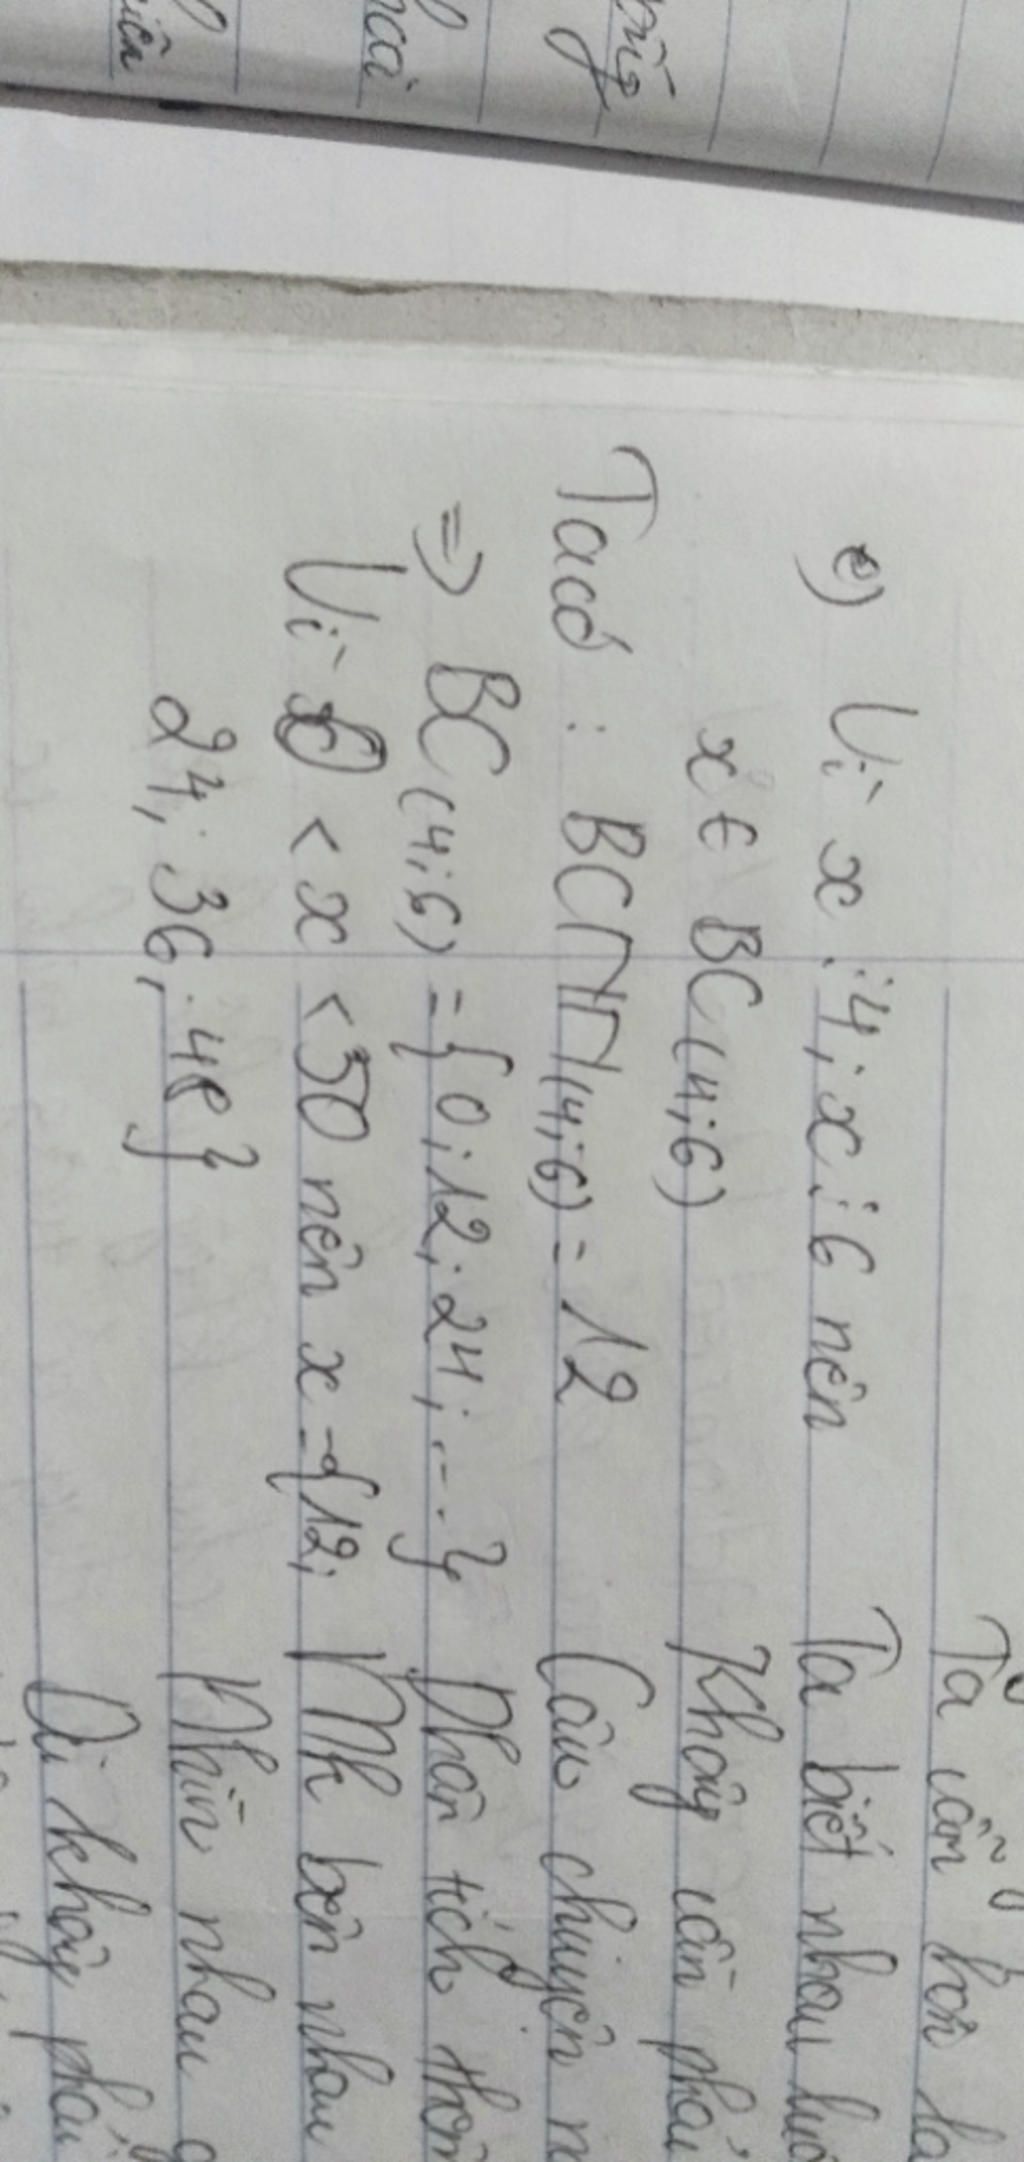 e) Vì x ⋮ 4; x ⋮ 6 nên
x ∈ BC (4; 6)
Ta có : BCNN (4; 6) = 12
=> BC (4; 6) = {0; 12; 24; ...}
Vì 0 < x < 50 nên x = {12;
24; 36; 48}
Ta vẫn
Ta biết nhau
Không cần phải
Câu chuyện
Phân tích
bên nhau
Nhìn nhau
phải